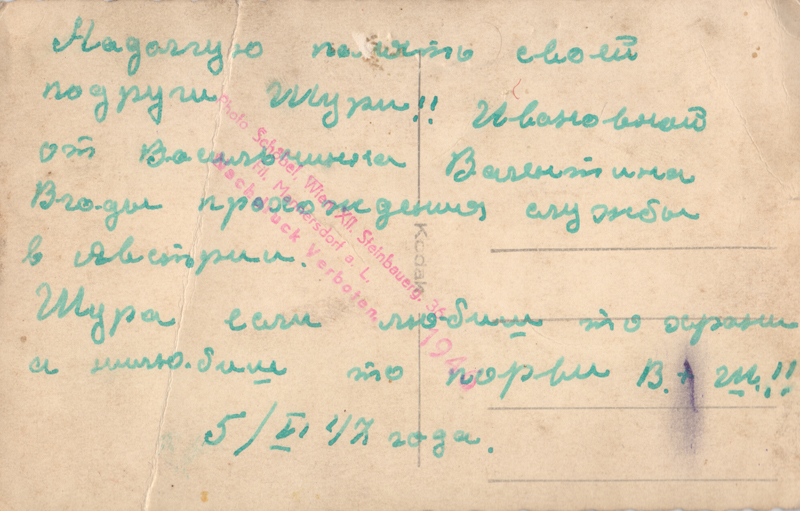 Надолгую память своей
подруги Шуры!! Ивановной
от Васильчинка Валентина
Вгоды прохождения службы
в Австрии.
Шура если любиш то храни
а нилюбиш то порви В.+ Ш.!!
5/II 47 года.
Photo Schabel, Wien XII. Steinbauerg. 3
Fil. Mannersdorf a. L.
Nachdruck Verboten.
194
Kodak